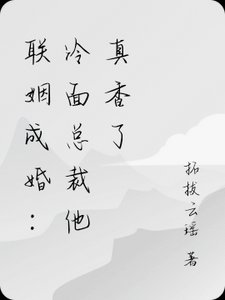 联姻成婚：
冷面总裁他
真香了
拓拔云瑶 著